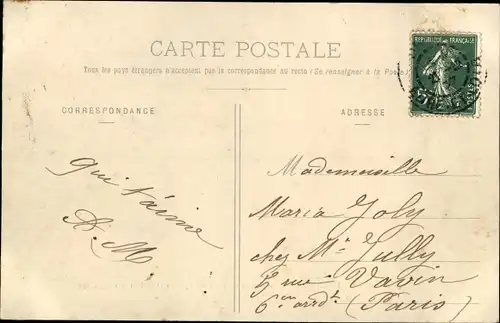 CARTE POSTALE
Tous les pays étrangers n'acceptent pas la correspondance au recto (Se renseigner à la Poste)
CORRESPONDANCE
ADRESSE
REPUBLIQUE FRANÇAISE
POSTES
qui t'aime
A. M
Mademoiselle
Maria Joly
chez Mr Jully
5 rue Vavin
6em arrdt (Paris)